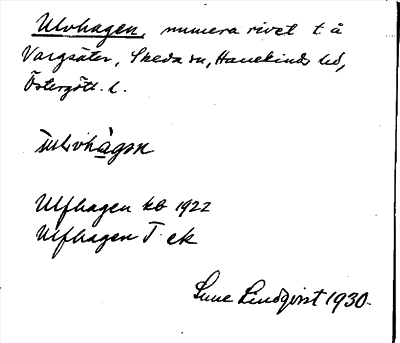 Ulvhagen, numera rivet t å
Vargsäter, Skeda sn, Hanekinds hd,
Östergötl. l.
Ulfhagen kb 1922
Ulfhagen T. ek
Sune Lindqvist 1930.